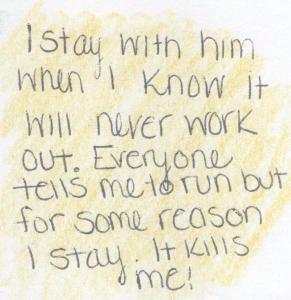 I stay with him
when I know it
will never work
out. Everyone
tells me to run but
for some reason
I stay. It kills
me!